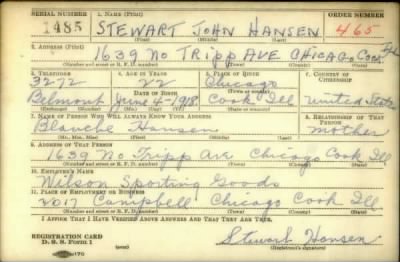 SERIAL NUMBER 1. NAME (Print) ORDER NUMBER
1485 STEWART JOHN HANSEN 465
(First) (Middle) (Last)
2. ADDRESS (Print)
1639 No TRIPP AVE CHICAGO Cook Ill
(Number and street or R. F. D. number) (Town) (County) (State)
3. TELEPHONE 4. AGE IN YEARS 5. PLACE OF BIRTH 6. COUNTRY OF CITIZENSHIP
3272 22 Chicago
DATE OF BIRTH (Town or county)
Belmont June 4-1918 Cook Ill United States
(Exchange) (Number) (Mo.) (Day) (Yr.) (State or country)
7. NAME OF PERSON WHO WILL ALWAYS KNOW YOUR ADDRESS 8. RELATIONSHIP OF THAT PERSON
Blanche Hansen mother
(Mr., Mrs., Miss) (First) (Middle) (Last)
9. ADDRESS OF THAT PERSON
1639 No. Tripp Ave Chicago Cook Ill
(Number and street or R. F. D. number) (Town) (County) (State)
10. EMPLOYER'S NAME
Wilson Sporting Goods
11. PLACE OF EMPLOYMENT OR BUSINESS
2017 Campbell Chicago Cook Ill
(Number and street or R. F. D. number) (Town) (County) (State)
I AFFIRM THAT I HAVE VERIFIED ABOVE ANSWERS AND THAT THEY ARE TRUE.
REGISTRATION CARD
D. S. S. Form 1 Stewart Hansen
(Registrant's signature)